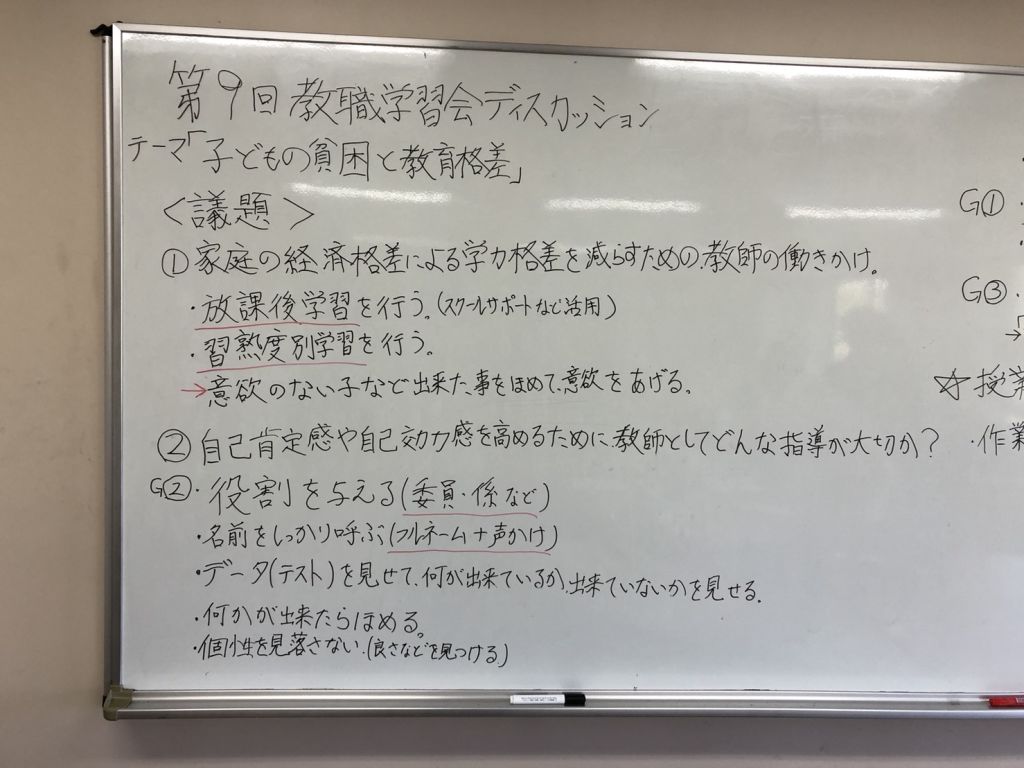 第9回教職学習会ディスカッション
テーマ「子どもの貧困と教育格差」
<議題>
①家庭の経済格差による学力格差を減らすための教師の働きかけ。
・放課後学習を行う。(スクールサポートなど活用)
・習熟度別学習を行う。
→意欲のない子など出来た事をほめて、意欲をあげる。
②自己肯定感や自己効力感を高めるために、教師としてどんな指導が大切か?
G②・役割を与える(委員・係など)
・名前をしっかり呼ぶ(フルネーム+声かけ)
・データ(テスト)を見せて、何が出来ているか、出来ていないかを見せる。
・何かが出来たらほめる。
・個性を見落さない。(良さなどを見つける)
G①・
G③・
→「
☆授業
・作業